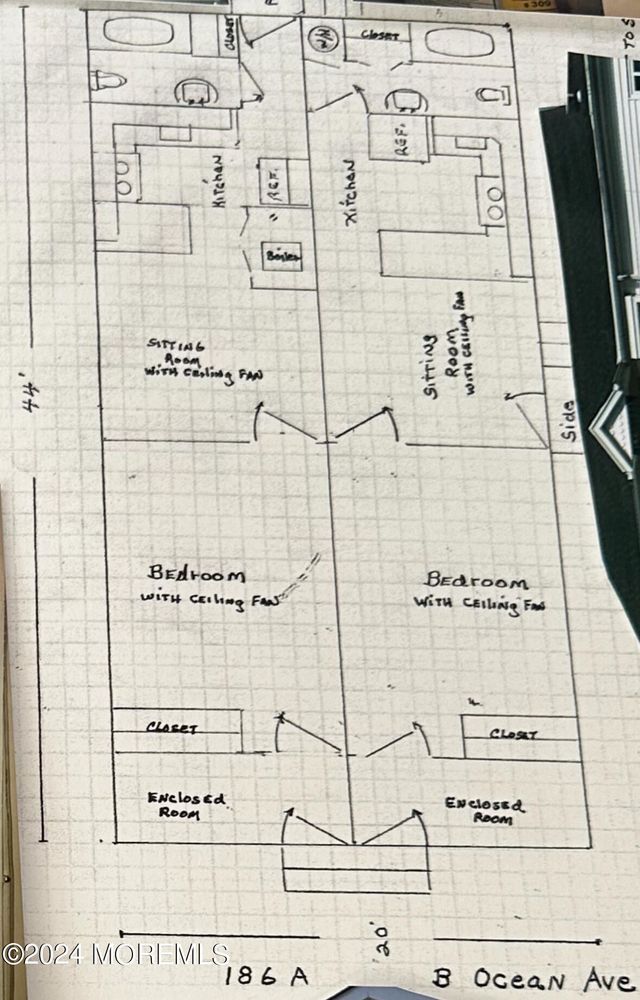 $309
To S
CLOSET
W/H
CLOSET
Kitchen
REF.
Kitchen
REF.
Boiler
SITTING
Room
WITH CEILING FAN
SITTING
ROOM
WITH CEILING FAN
44'
Side
BEdroom
WITH CEILING FAN
BEdroom
WITH CEILING FAN
CLOSET
CLOSET
ENCLOSED
ROOM
ENCLOSED
ROOM
20'
©2024 MOREMLS
186 A
B OCEAN AVE